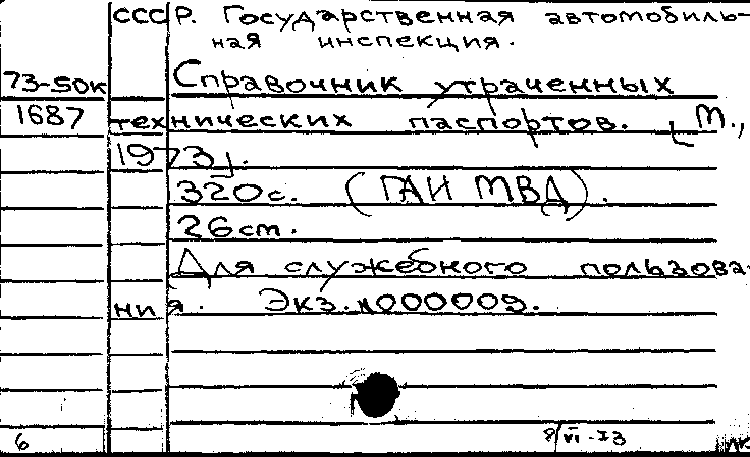 СССР. Государственная автомобиль-
ная инспекция.
73-50к
Справочник утраченных
1687
технических паспортов. [М.,
1973].
320с. (ГАИ МВД).
26 ст.
Для служебного пользова-
ния. Экз. N000009.
6
8/VI-73